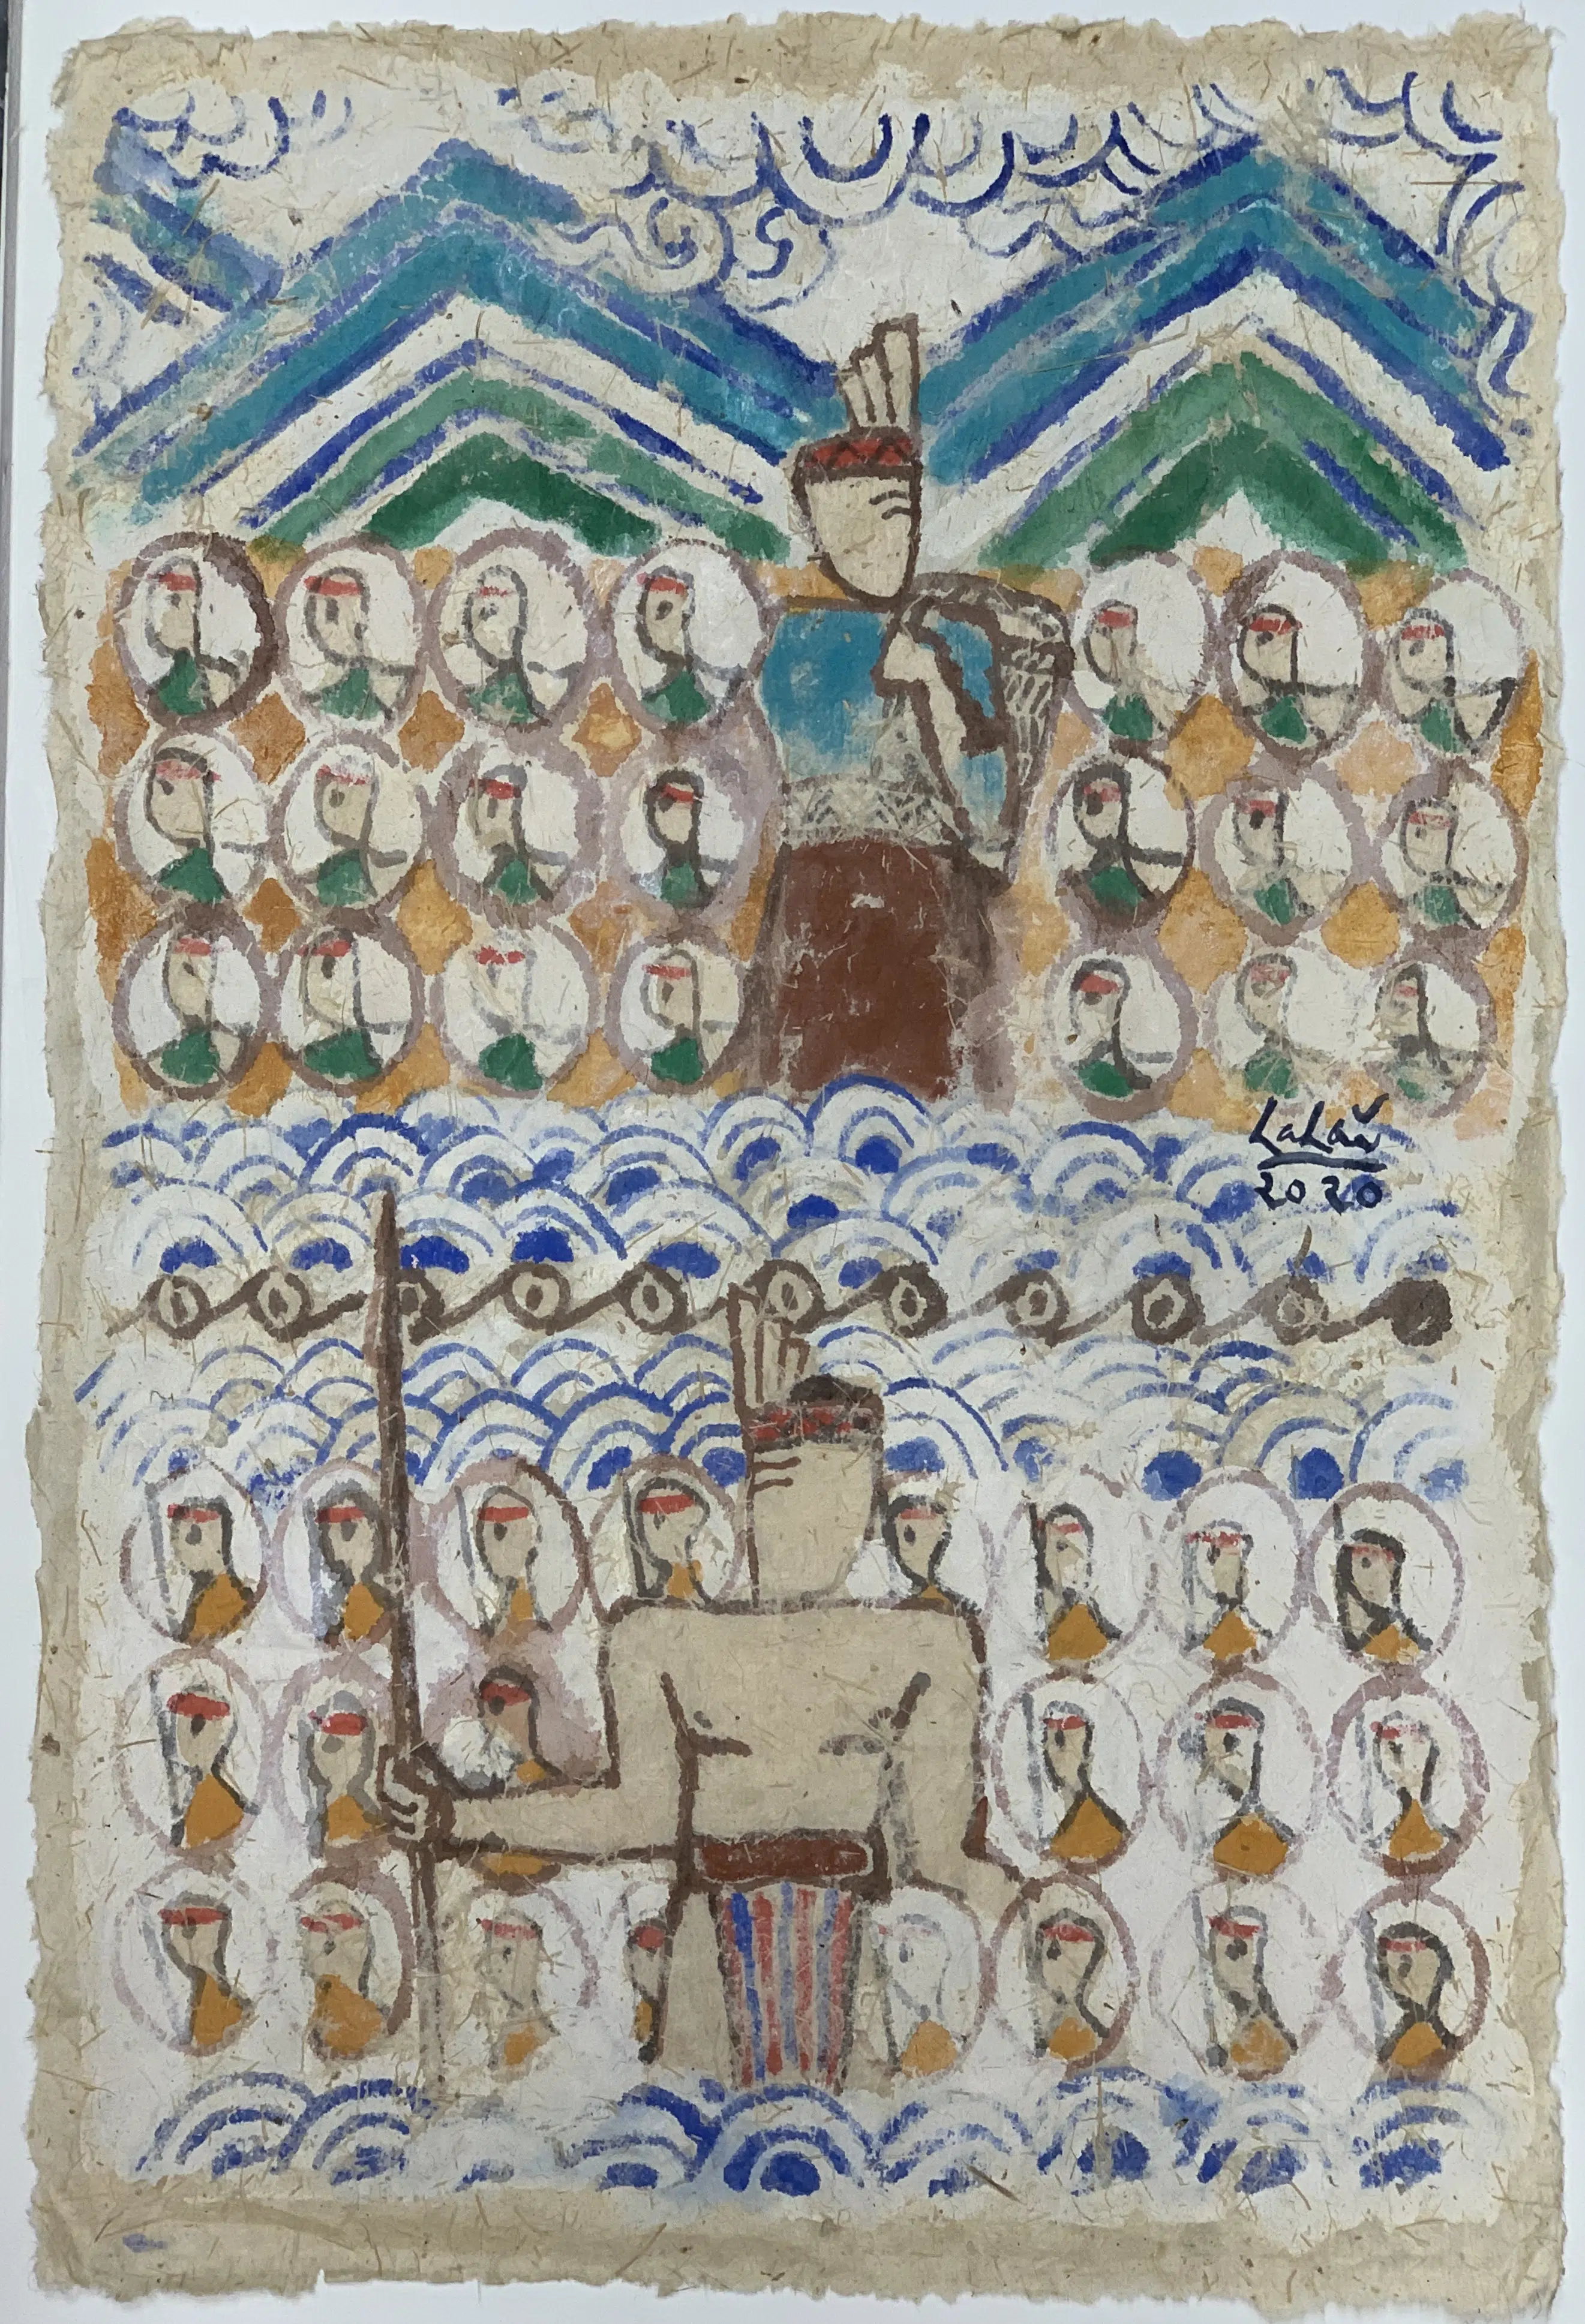 LaLaŭ
2020